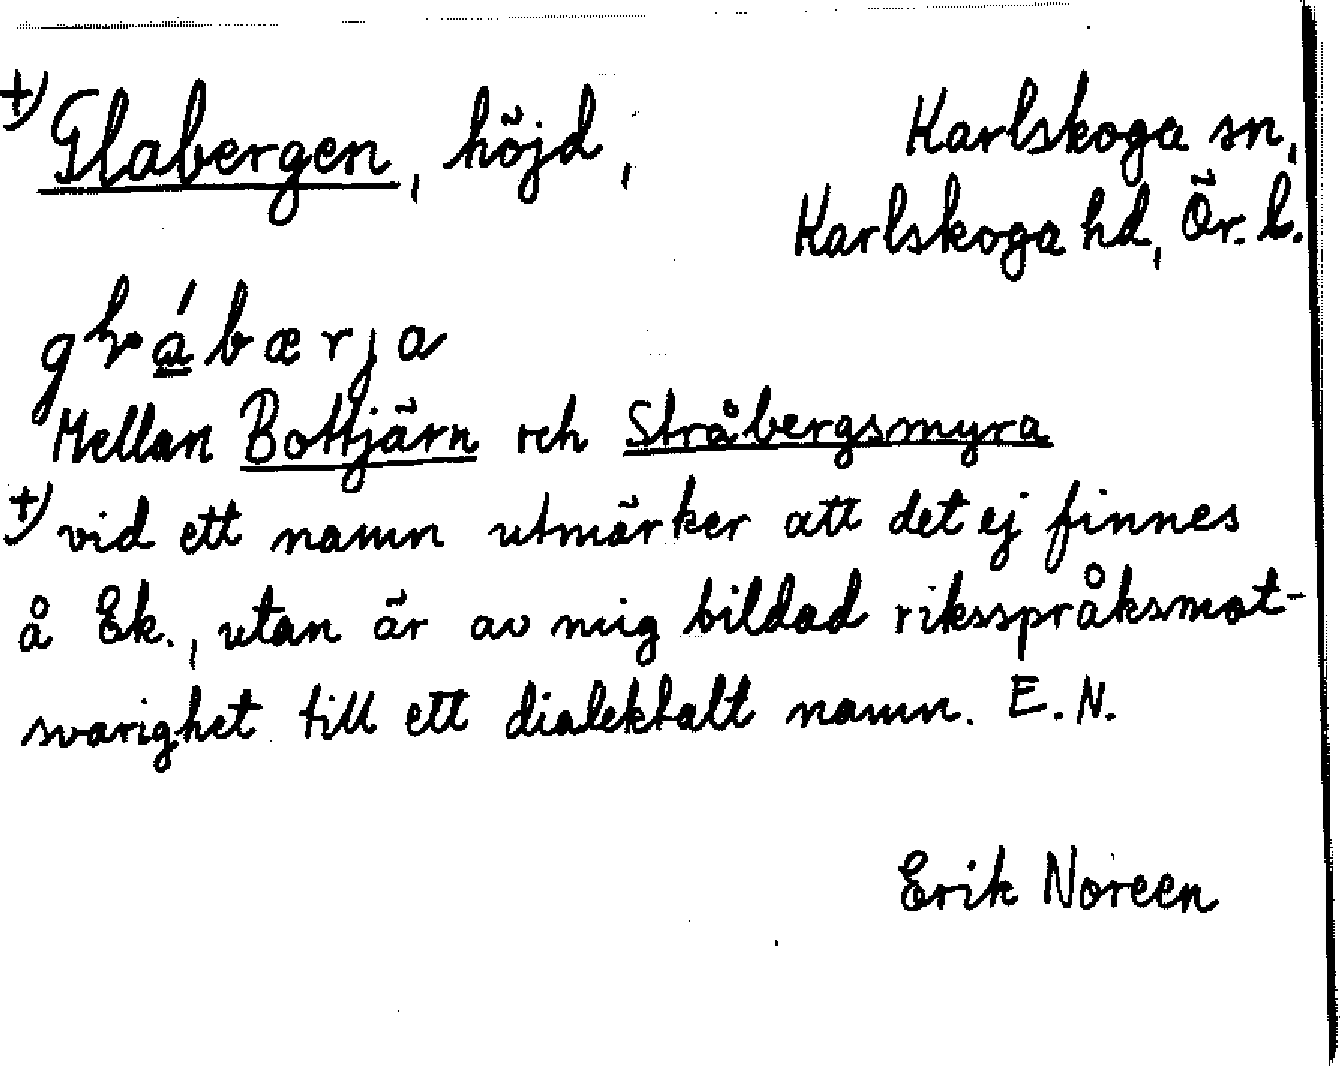 +) Glabergen, höjd, Karlskoga sn,
Karlskoga hd, Ör. l.
Mellan Bottjärn och Stråbergsmyra
+) vid ett namn utmärker att det ej finnes
å Ek., utan är av mig bildad riksspråksmot-
svarighet till ett dialektalt namn. E. N.
Erik Noreen